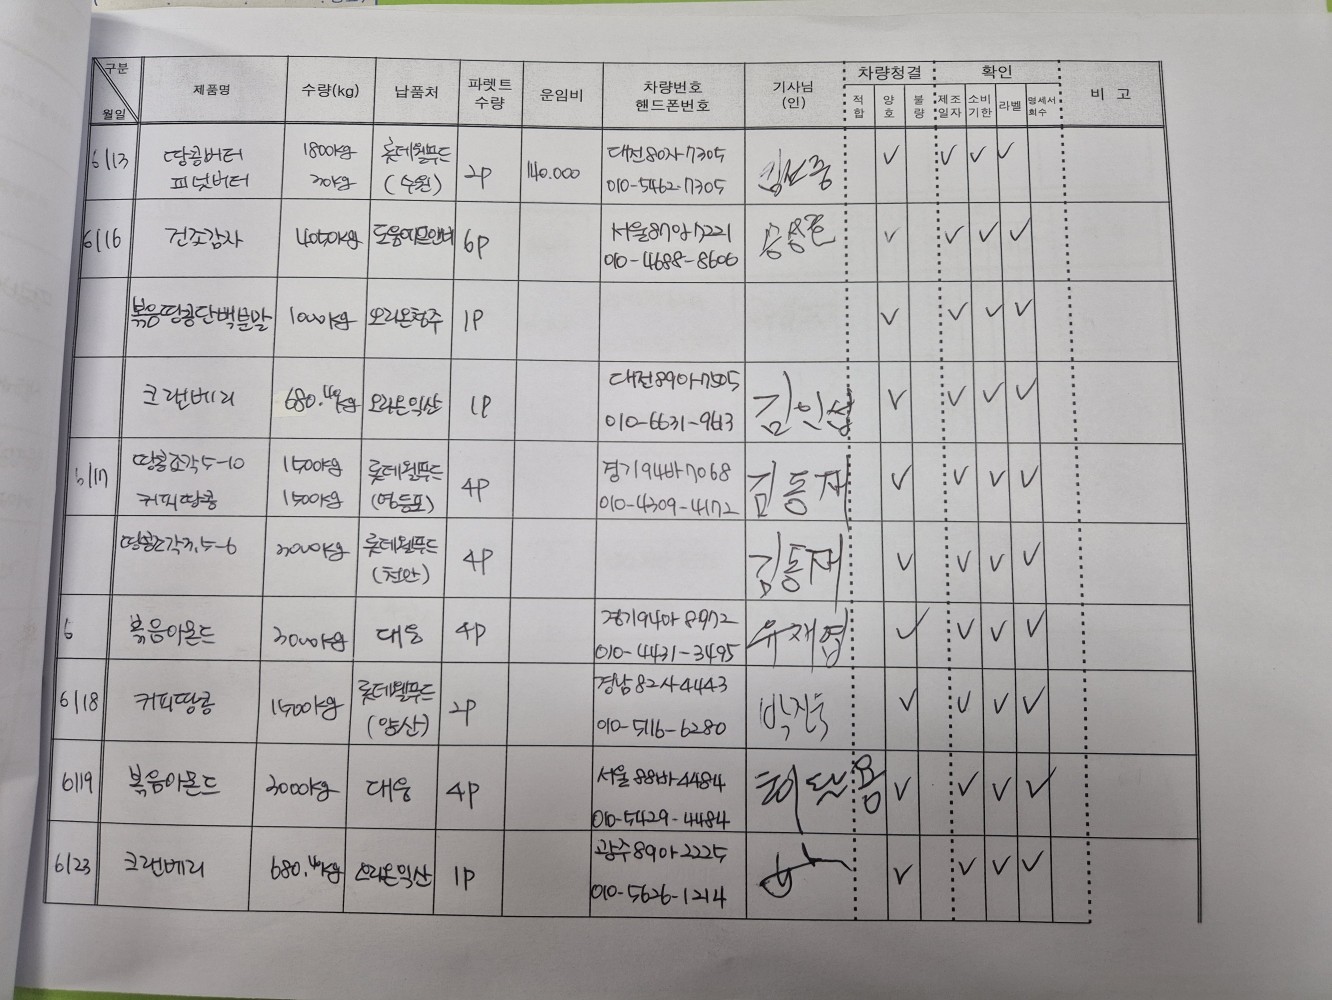 구분
월일
제품명
수량(kg)
납품처
파렛트
수량
운임비
차량번호
핸드폰번호
기사님
(인)
차량청결
적합
양호
불량
확인
제조
일자
소비
기한
라벨
명세서
회수
비 고
6/13
땅콩버터
1800kg
롯데웰푸드
2P
140.000
대전80자7305
피넛버터
20kg
(수원)
010-5462-7305
6/16
건조감자
6P
서울87양7221
010-4688-8600
볶음땅콩단백분말
1000kg
오리온청주
1P
크랜베리
680.4kg
오리온익산
1P
대전89아7505
010-6631-9613
김인섭
6/17
땅콩조각5-10
1500kg
롯데웰푸드
4P
경기94바7068
김동재
커피땅콩
1500kg
(영등포)
010-4309-4172
땅콩조각3.5-6
3000kg
롯데웰푸드
(천안)
4P
김동재
6
볶음아몬드
3000kg
대웅
4P
경기94아8972
010-4431-3495
유재엽
6/18
커피땅콩
1500kg
롯데웰푸드
(양산)
2P
경남82사4443
010-5116-6280
6/19
볶음아몬드
3000kg
대웅
4P
서울88바4484
010-5429-4484
6/23
크랜베리
680.4kg
오리온익산
1P
광주89아2225
010-5626-1214